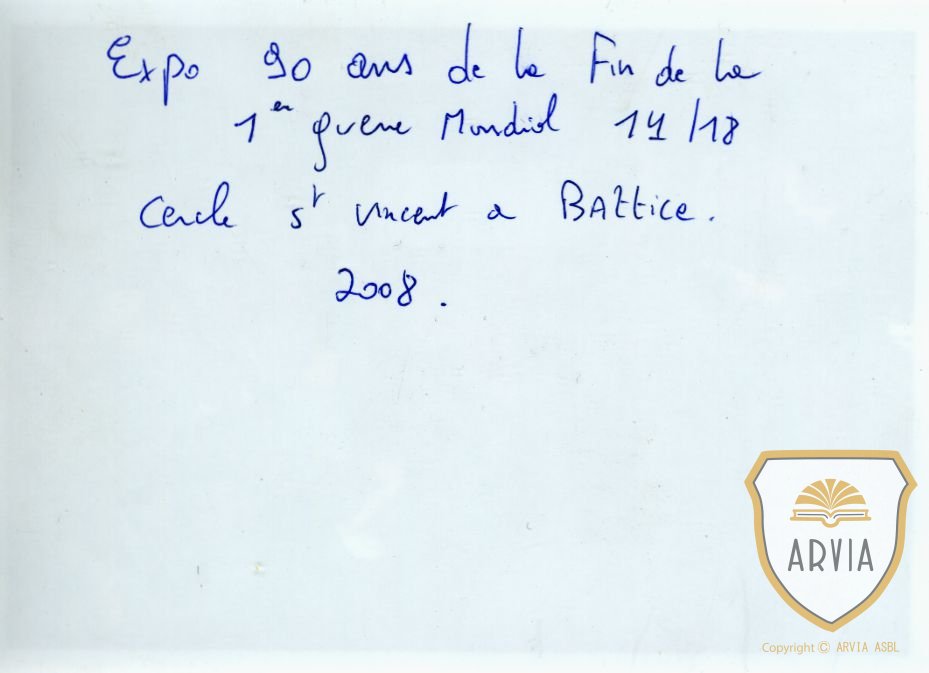 Expo 90 ans de la Fin de la
1er guerre Mondial 14/18
Cercle st vincent a BAttice.
2008.
ARVIA
Copyright © ARVIA ASBL